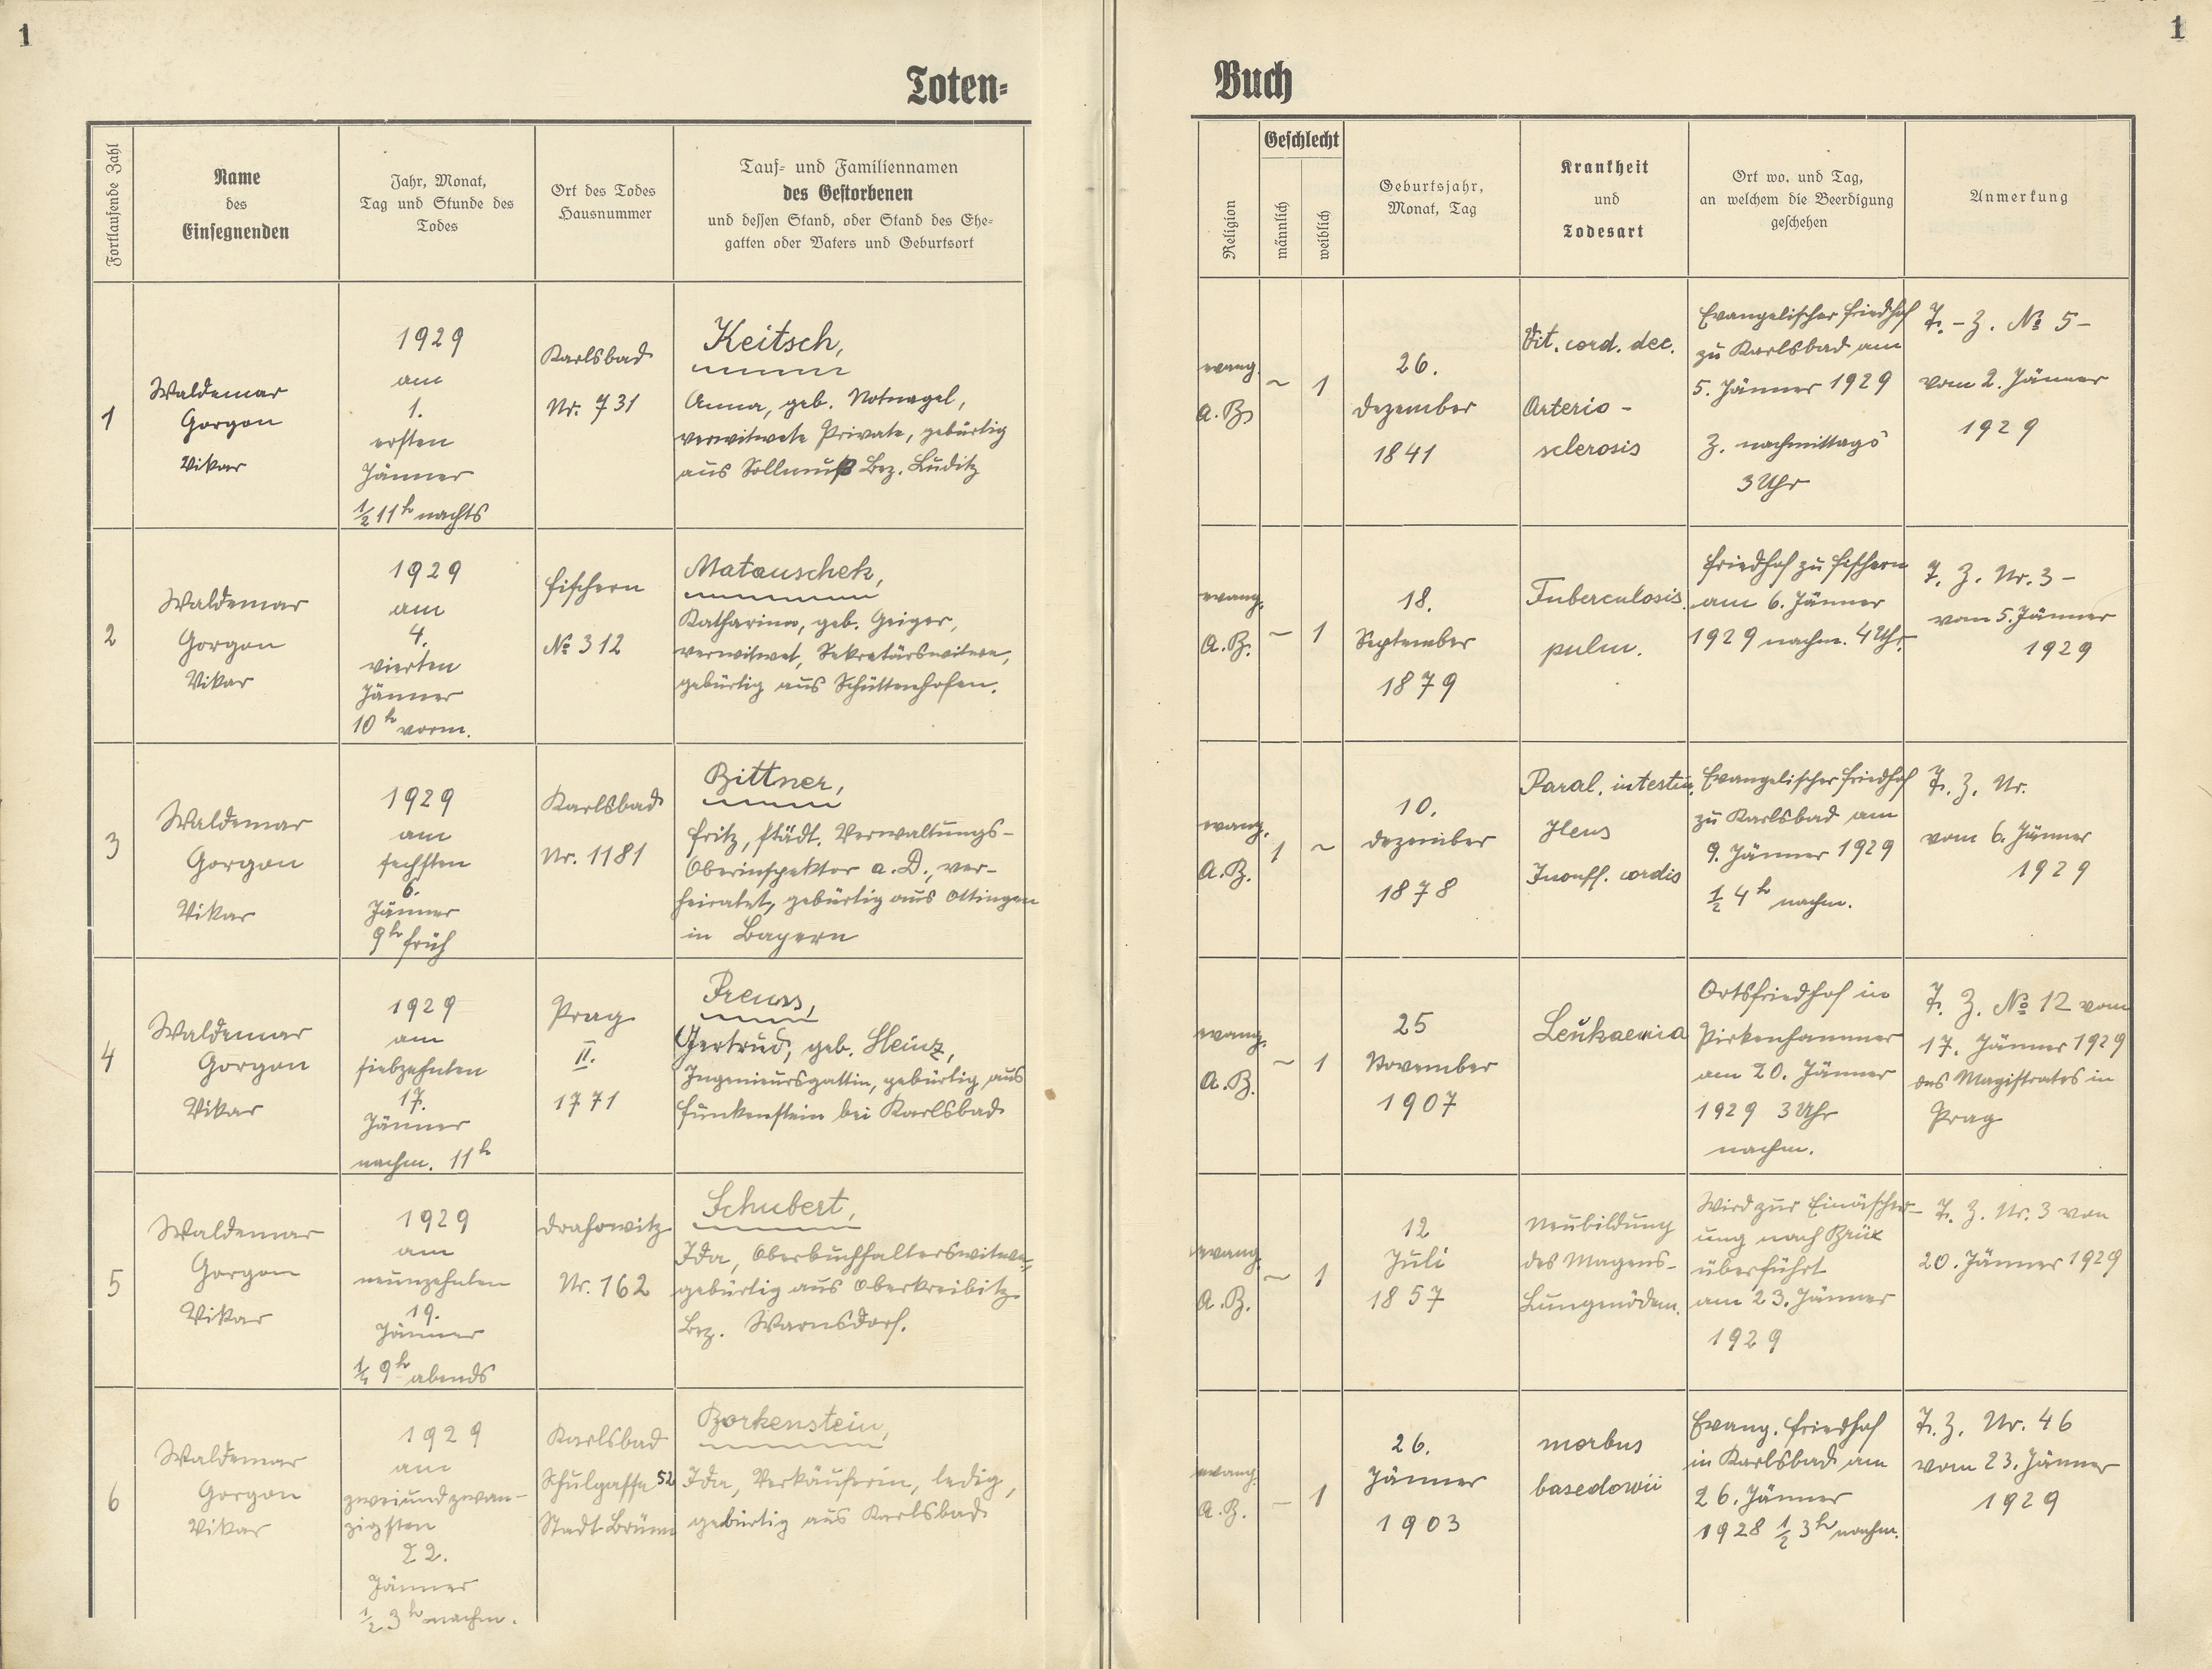 1
1
Toten-
Buch
Fortlaufende Zahl
Name
des
Einsegnenden
Jahr, Monat,
Tag und Stunde des
Todes
Ort des Todes
Hausnummer
Tauf- und Familiennamen
des Gestorbenen
und dessen Stand, oder Stand des Ehe-
gatten oder Vaters und Geburtsort
Religion
Geschlecht
männlich
weiblich
Geburtsjahr,
Monat, Tag
Krankheit
und
Todesart
Ort wo, und Tag,
an welchem die Beerdigung
geschehen
Anmerkung
1
Waldemar
Gorgon
Vikar
1929
am
1.
ersten
Jänner
½ 11h nachts
Karlsbad
Nr. 731
Keitsch,
Anna, geb. Notnagel,
verwitwete Private, gebürtig
aus Sollmuß Bez. Luditz
evang.
A.B.
~
1
26.
Dezember
1841
Vit. cord. dec.
Arterio-
sclerosis
Evangelischer Friedhof
zu Karlsbad am
5. Jänner 1929
Z. nachmittags
3 Uhr
T.-Z. № 5-
vom 2. Jänner
1929
2
Waldemar
Gorgon
Vikar
1929
am
4.
vierten
Jänner
10h vorm.
Fischern
№ 312
Matauschek,
Katharina, geb. Geiger,
verwitwet, Sekretärswitwe,
gebürtig aus Schüttenhofen.
evang.
A.B.
~
1
18.
September
1879
Tuberculosis
pulm.
Friedhof zu Fischern
am 6. Jänner
1929 nachm. 4 Uhr.
T. Z. Nr. 3-
vom 5. Jänner
1929
3
Waldemar
Gorgon
Vikar
1929
am
sechsten
6.
Jänner
9h früh
Karlsbad
Nr. 1181
Bittner,
Fritz, städt. Verwaltungs-
Oberinspektor a.D., ver-
heiratet, gebürtig aus Ottingen
in Bayern
evang.
A.B.
1
~
10.
Dezember
1878
Paral. intestin.
Ileus
Insuff. cordis
Evangelischer Friedhof
zu Karlsbad am
9. Jänner 1929
½ 4h nachm.
T. Z. Nr.
vom 6. Jänner
1929
4
Waldemar
Gorgon
Vikar
1929
am
siebzehnten
17.
Jänner
nachm. 11h
Prag
II.
1771
Preuss,
Gertrud, geb. Heinz,
Ingenieursgattin, gebürtig aus
Funkenstein bei Karlsbad
evang.
A.B.
~
1
25
November
1907
Leukaemia
Ortsfriedhof in
Pirkenhammer
am 20. Jänner
1929 3 Uhr
nachm.
T. Z. № 12 vom
17. Jänner 1929
des Magistrates in
Prag
5
Waldemar
Gorgon
Vikar
1929
am
neunzehnten
19.
Jänner
9h abends
Drahowitz
Nr. 162
Schubert,
Ida, Oberbuchhalterswitwe,
gebürtig aus Oberkreibitz
Bez. Warnsdorf.
evang.
A.B.
~
1
12
Juli
1857
Neubildung
des Magens-
Lungenödem.
Wird zur Einäscher-
ung nach Brüx
überführt
am 23. Jänner
1929
T. Z. Nr. 3 von
20. Jänner 1929
6
Waldemar
Gorgon
Vikar
1929
am
zweiundzwan-
zigsten
22.
Jänner
½ 3h nachm.
Karlsbad
Schulgasse 52
Stadt Brünn
Borkenstein,
Ida, Verkäuferin, ledig,
gebürtig aus Karlsbad
evang.
A.B.
-
1
26.
Jänner
1903
morbus
basedowii
Evang. Friedhof
in Karlsbad am
26. Jänner
1928 ½ 3h nachm.
T. Z. Nr. 46
vom 23. Jänner
1929